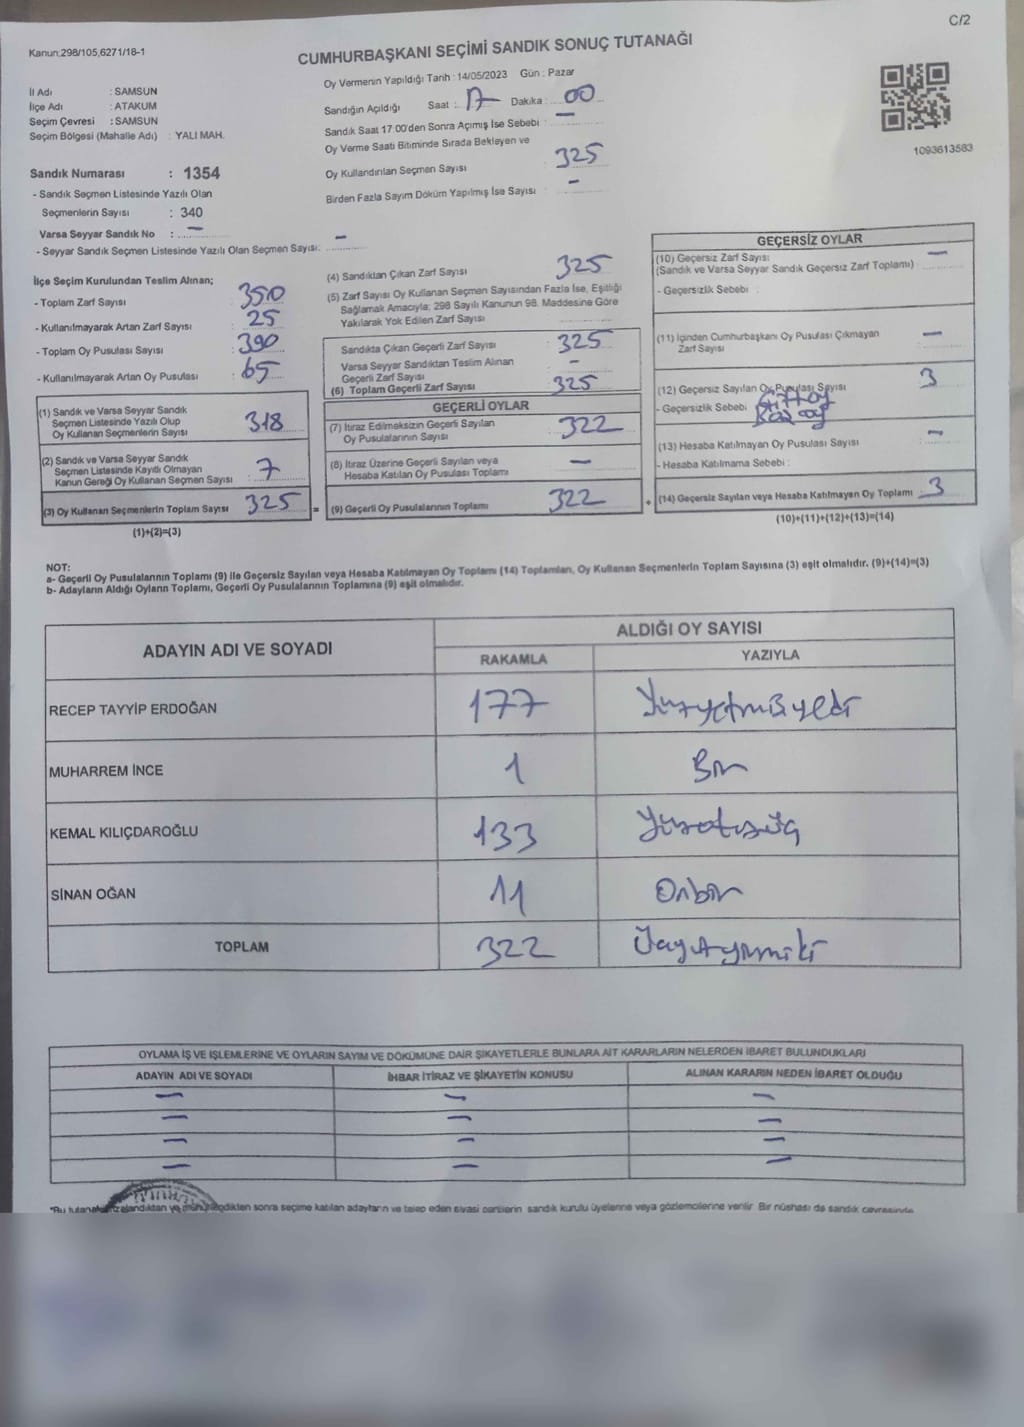 C/2
Kanun:298/105,6271/18-1
CUMHURBAŞKANI SEÇİMİ SANDIK SONUÇ TUTANAĞI
Oy Vermenin Yapıldığı Tarih : 14/05/2023 Gün : Pazar
İl Adı : SAMSUN
İlçe Adı : ATAKUM
Seçim Çevresi : SAMSUN
Seçim Bölgesi (Mahalle Adı) : YALI MAH.
Sandığın Açıldığı Saat : 17 Dakika : 00
Sandık Saat 17.00'den Sonra Açılmış İse Sebebi : —
Oy Verme Saati Bitiminde Sırada Bekleyen ve
Oy Kullandırılan Seçmen Sayısı 325
Birden Fazla Sayım Döküm Yapılmış İse Sayısı : —
1093613583
Sandık Numarası : 1354
- Sandık Seçmen Listesinde Yazılı Olan
Seçmenlerin Sayısı : 340
Varsa Seyyar Sandık No : —
- Seyyar Sandık Seçmen Listesinde Yazılı Olan Seçmen Sayısı: —
İlçe Seçim Kurulundan Teslim Alınan;
- Toplam Zarf Sayısı : 350
- Kullanılmayarak Artan Zarf Sayısı : 25
- Toplam Oy Pusulası Sayısı : 390
- Kullanılmayarak Artan Oy Pusulası : 65
(1) Sandık ve Varsa Seyyar Sandık
Seçmen Listesinde Yazılı Olup
Oy Kullanan Seçmenlerin Sayısı 318
(2) Sandık ve Varsa Seyyar Sandık
Seçmen Listesinde Kayıtlı Olmayan
Kanun Gereği Oy Kullanan Seçmen Sayısı : 7
(3) Oy Kullanan Seçmenlerin Toplam Sayısı 325
(1)+(2)=(3)
(4) Sandıktan Çıkan Zarf Sayısı 325
(5) Zarf Sayısı Oy Kullanan Seçmen Sayısından Fazla İse, Eşitliği
Sağlamak Amacıyla; 298 Sayılı Kanunun 98. Maddesine Göre
Yakılarak Yok Edilen Zarf Sayısı
Sandıkta Çıkan Geçerli Zarf Sayısı : 325
Varsa Seyyar Sandıktan Teslim Alınan
Geçerli Zarf Sayısı : —
(6) Toplam Geçerli Zarf Sayısı 325
GEÇERLİ OYLAR
(7) İtiraz Edilmeksizin Geçerli Sayılan
Oy Pusulalarının Sayısı : 322
(8) İtiraz Üzerine Geçerli Sayılan veya
Hesaba Katılan Oy Pusulası Toplamı : —
= (9) Geçerli Oy Pusulalarının Toplamı 322
GEÇERSİZ OYLAR
(10) Geçersiz Zarf Sayısı —
(Sandık ve Varsa Seyyar Sandık Geçersiz Zarf Toplamı) :
- Geçersizlik Sebebi :
(11) İçinden Cumhurbaşkanı Oy Pusulası Çıkmayan
Zarf Sayısı : —
(12) Geçersiz Sayılan Oy Pusulası Sayısı 3
- Geçersizlik Sebebi
(13) Hesaba Katılmayan Oy Pusulası Sayısı : —
- Hesaba Katılmama Sebebi :
+ (14) Geçersiz Sayılan veya Hesaba Katılmayan Oy Toplamı 3
(10)+(11)+(12)+(13)=(14)
NOT:
a- Geçerli Oy Pusulalarının Toplamı (9) ile Geçersiz Sayılan veya Hesaba Katılmayan Oy Toplamı (14) Toplamları, Oy Kullanan Seçmenlerin Toplam Sayısına (3) eşit olmalıdır. (9)+(14)=(3)
b- Adayların Aldığı Oyların Toplamı, Geçerli Oy Pusulalarının Toplamına (9) eşit olmalıdır.
ADAYIN ADI VE SOYADI ALDIĞI OY SAYISI
RAKAMLA YAZIYLA
RECEP TAYYİP ERDOĞAN 177 Yüzyetmişyedi
MUHARREM İNCE 1 Bir
KEMAL KILIÇDAROĞLU 133 Yüzotuzüç
SİNAN OĞAN 11 Onbir
TOPLAM 322 Üçyüzyirmiiki
OYLAMA İŞ VE İŞLEMLERİNE VE OYLARIN SAYIM VE DÖKÜMÜNE DAİR ŞİKAYETLERLE BUNLARA AİT KARARLARIN NELERDEN İBARET BULUNDUKLARI
ADAYIN ADI VE SOYADI İHBAR İTİRAZ VE ŞİKAYETİN KONUSU ALINAN KARARIN NEDEN İBARET OLDUĞU
— — —
— — —
— — —
— — —
ve mühürlendikten sonra seçime katılan adayların ve talep eden siyasi partilerin sandık kurulu üyelerine veya gözlemcilerine verilir. Bir nüshası da sandık çevresinde